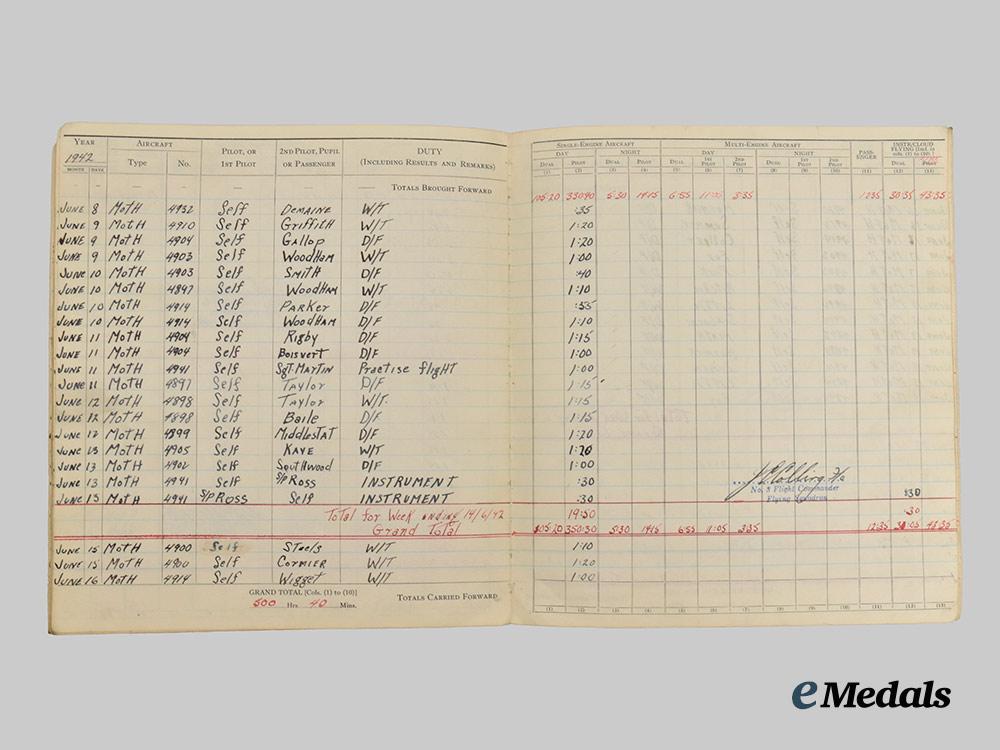 YEAR AIRCRAFT PILOT, OR 2ND PILOT, PUPIL DUTY SINGLE-ENGINE AIRCRAFT MULTI-ENGINE AIRCRAFT PASS- INSTR/CLOUD
1942 Type No. 1ST PILOT OR PASSENGER (INCLUDING RESULTS AND REMARKS) DAY NIGHT DAY NIGHT ENGER FLYING [Incl. in cols. (1) to (10)]
MONTH DATE DUAL PILOT DUAL PILOT DUAL 1ST PILOT 2ND PILOT DUAL 1ST PILOT 2ND PILOT DUAL PILOT
(1) (2) (3) (4) (5) (6) (7) (8) (9) (10) (11) (12) (13)
— — — — — — TOTALS BROUGHT FORWARD 105:20 5:30 19:15 6:55 3:35 12:35 30:35 43:35
JUNE 8 MOTH 4932 Self DEMAINE W/T :35
JUNE 9 MOTH 4910 Self GRIFFITH W/T 1:20
JUNE 9 MOTH 4904 Self GALLOP D/F 1:20
JUNE 9 MOTH 4903 Self WOODHAM W/T 1:00
JUNE 10 MOTH 4903 Self SMITH D/F :40
JUNE 10 MOTH 4897 Self WOODHAM W/T 1:10
JUNE 10 MOTH 4914 Self PARKER D/F :55
JUNE 10 MOTH 4914 Self WOODHAM D/F 1:10
JUNE 11 MOTH 4904 Self Rigby D/F 1:15
JUNE 11 MOTH 4904 Self BOISVERT D/F 1:00
JUNE 11 MOTH 4941 Self SgT. MARTIN Practise flight 1:00
JUNE 11 MOTH 4897 Self TAYLOR D/F 1:15
JUNE 12 MOTH 4898 Self TAYLOR W/T 1:15
JUNE 12 MOTH 4898 Self Baile D/F 1:15
JUNE 12 MOTH 4899 Self D/F 1:20
JUNE 13 MOTH 4905 Self KAYE W/T 1:20
JUNE 13 MOTH 4902 Self Southwood D/F 1:00
JUNE 13 MOTH 4941 Self S/P ROSS INSTRUMENT :30
No. 3 Flight Commander
JUNE 13 MOTH 4941 S/P ROSS Self INSTRUMENT :30 :30
Flying Squadron
Total for Week ending 14/6/42 19:50 :30
Grand Total 105:20 350:30 5:30 19:15 6:55 11:05 3:35 12:35 31:05 43:35
JUNE 15 MOTH 4900 Self W/T 1:10
JUNE 15 MOTH 4900 Self CORMIER W/T 1:20
JUNE 16 MOTH 4914 Self Wigget W/T 1:00
GRAND TOTAL [Cols. (1) to (10)] TOTALS CARRIED FORWARD
500 Hrs. 40 Mins.
(1) (2) (3) (4) (5) (6) (7) (8) (9) (10) (11) (12) (13)
eMedals